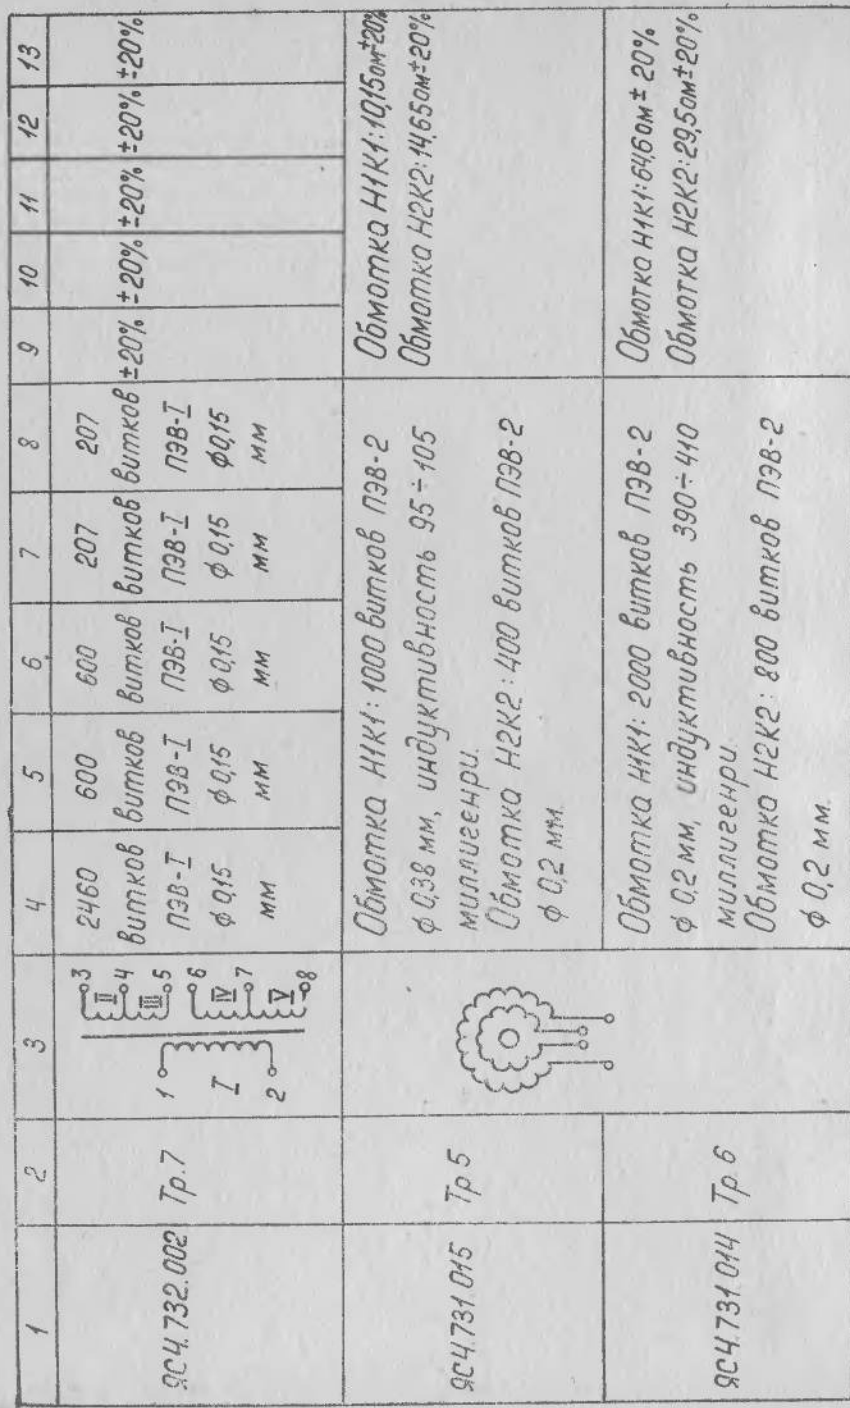 1 2 3 4 5 6 7 8 9 10 11 12 13
ЯС4.732.002 Тр.7
1 I 2
II III IV V
3 4 5 6 7 8
2460 витков ПЭВ-I ф0,15 мм
600 витков ПЭВ-I ф0,15 мм
600 витков ПЭВ-I ф0,15 мм
207 витков ПЭВ-I ф0,15 мм
207 витков ПЭВ-I ф0,15 мм
±20% ±20% ±20% ±20% ±20%
ЯС4.731.015 Тр 5
Обмотка Н1К1: 1000 витков ПЭВ-2
ф 0,38 мм, индуктивность 95÷105
миллигенри.
Обмотка Н2К2: 400 витков ПЭВ-2
ф 0,2 мм.
Обмотка Н1К1: 10,15 ом±20%
Обмотка Н2К2: 14,65 ом±20%
ЯС4.731.014 Тр 6
Обмотка Н1К1: 2000 витков ПЭВ-2
ф 0,2 мм, индуктивность 390÷410
миллигенри.
Обмотка Н2К2: 800 витков ПЭВ-2
ф 0,2 мм.
Обмотка Н1К1: 64,6 ом±20%
Обмотка Н2К2: 29,5 ом±20%